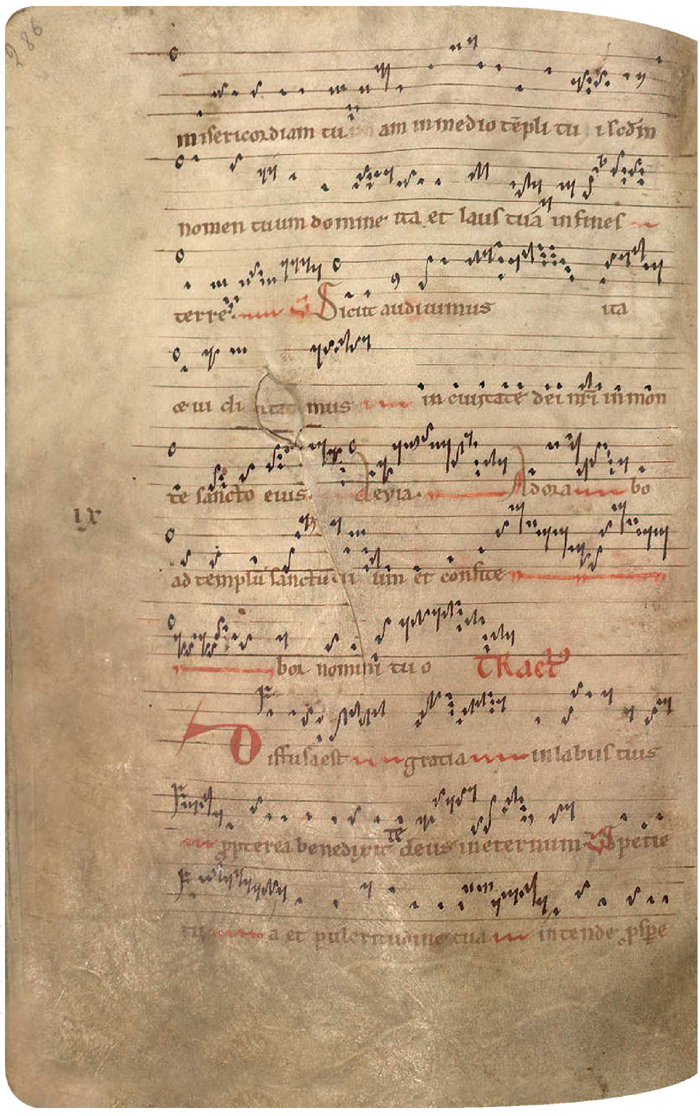 286
misericordiam tu am in medio tēpli tu i scdm
nomen tuum domine ita et laus tua in fines
terre Sicut audiuimus ita
et ui di mus in ciuitate dei nri in mon
te sancto eius. aleuia. Adora bo
ix
ad templū sanctū tu um et confite
bor nomini tu o TRact
Diffusa est gratia in labiis tuis
ppterea benedixit te deus in eternum Specie
tu a et pulcritudine tua intende pspe